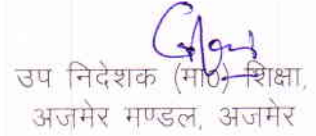 उप निदेशक (मा0) शिक्षा,
अजमेर मण्डल, अजमेर